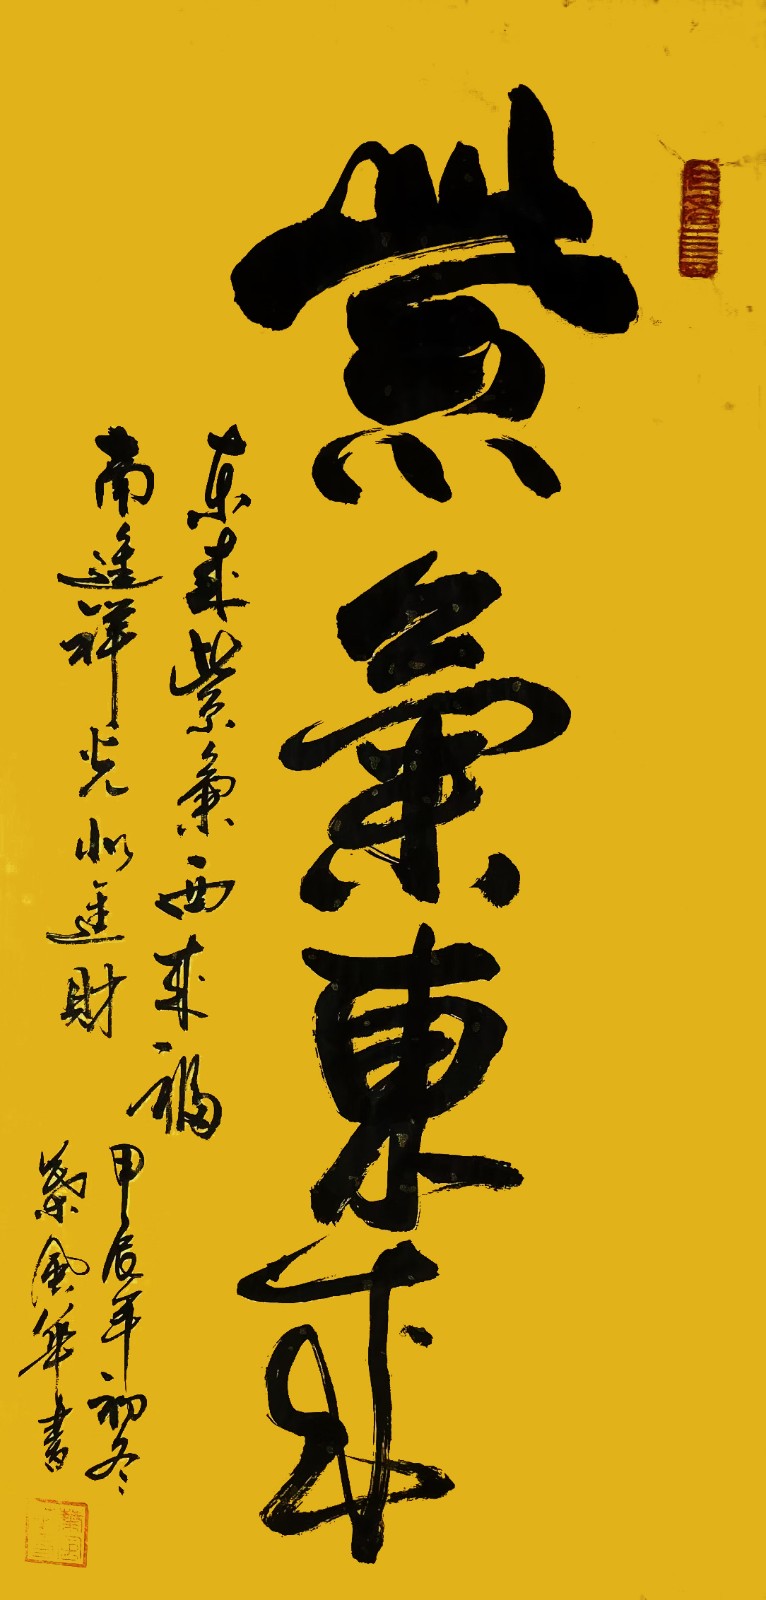 紫氣東來
東來紫氣西來福
南進祥光北進財
甲辰年初冬
風華書